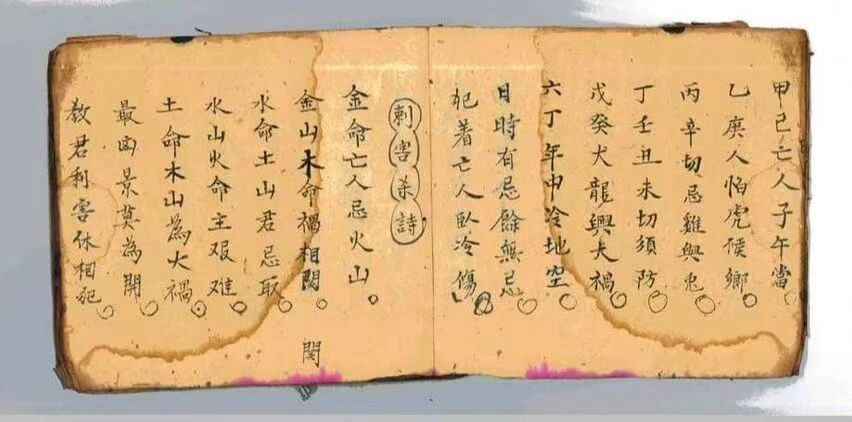 甲己亡人子午當。
乙庚人怕虎候鄉。
丙辛切忌雞與兎
丁壬丑未切須防
戊癸犬龍興大禍
六丁年中冷地空
日時有忌餘無忌
犯着亡人臥冷傷
刺害杀詩
金命亡人忌火山。
金山木命禍相関
関
水命土山君忌取
水山火命主艰难
土命木山為大禍
最凶景莫為開
教君利害休相犯